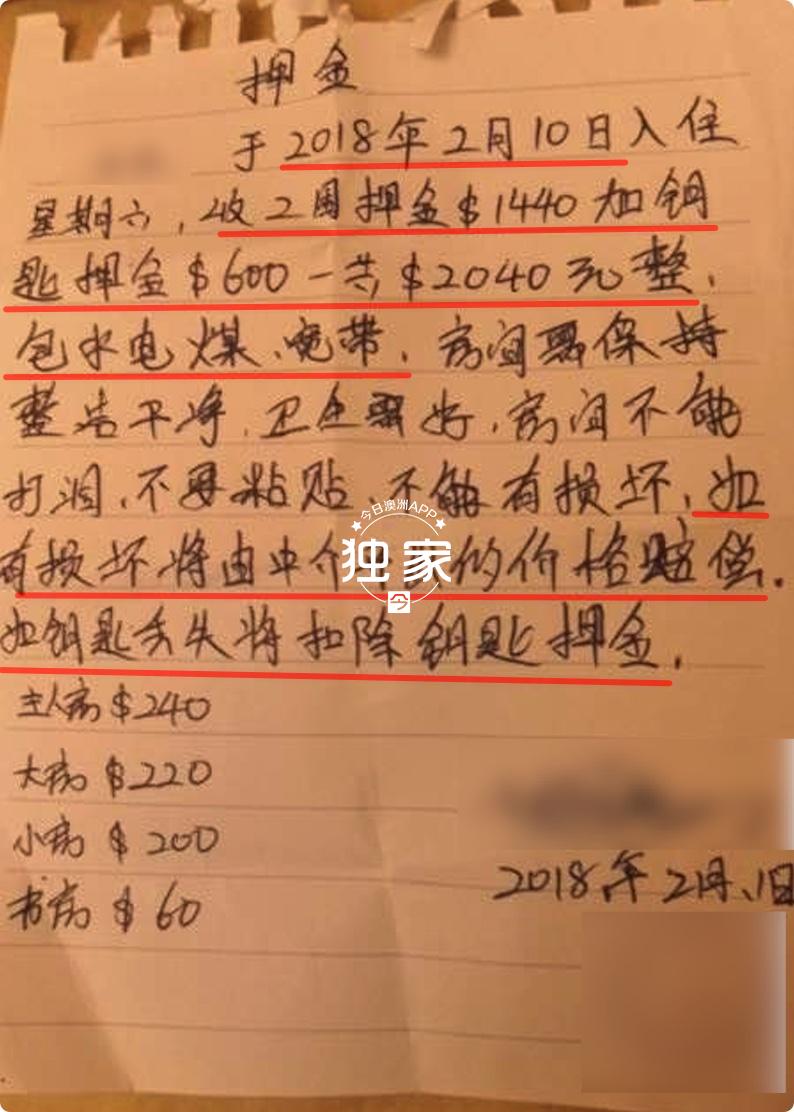 押金
于2018年2月10日入住
星期六,收2周押金$1440加钥
匙押金$600一共$2040元整.
包水电煤、宽带.房间要保持
整洁干净.卫生要好,房间不能
打洞.不要粘贴.不能有损坏.如
今日澳洲APP
独家
今
有损坏将由中介的价格赔偿.
如钥匙丢失将扣除钥匙押金.
主人房$240
大房$220
小房$200
书房$60
2018年2月、1日